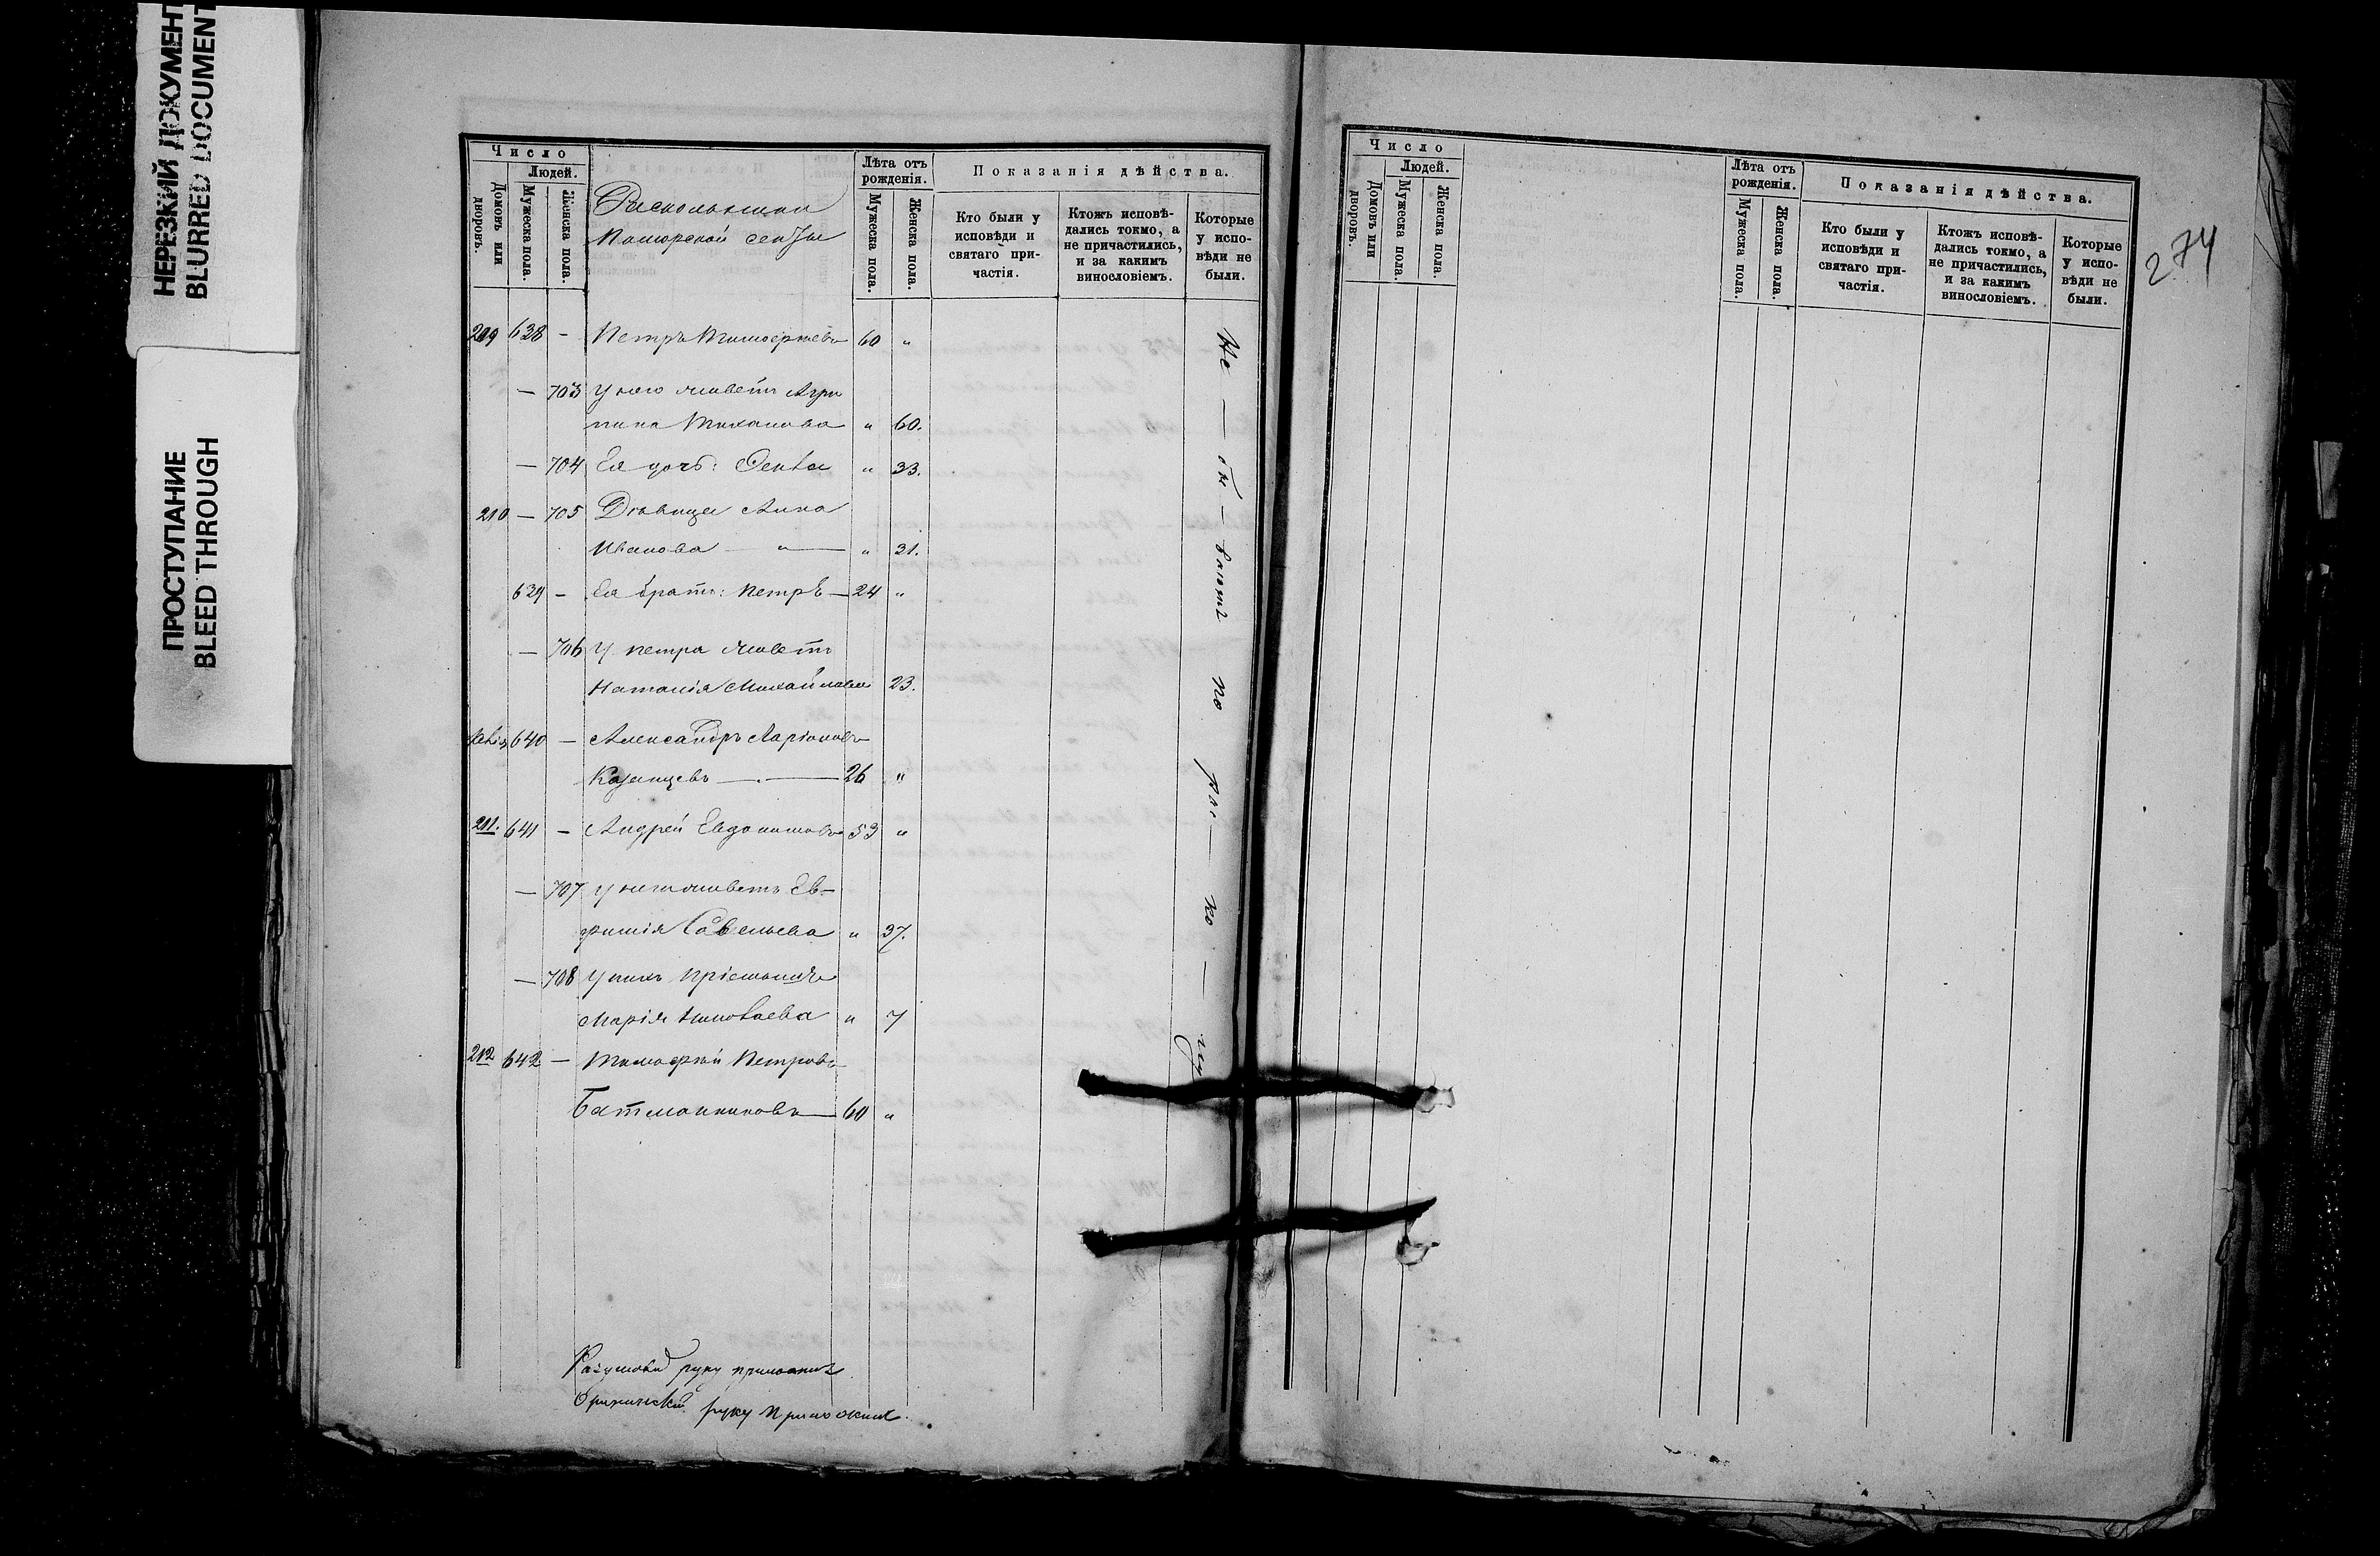 НЕРЕЗКИЙ ДОКУМЕНТ
BLURRED DOCUMENT
ПРОСТУПАНИЕ
BLEED THROUGH
Число
Людей.
Домовъ или дворовъ.
Мужеска пола.
Женска пола.
Раскольники
Поморской секты
Лѣта отъ рожденія.
Мужеска пола.
Женска пола.
Показанія дѣйства.
Кто были у исповѣди и святаго причастія.
Ктожъ исповѣдались токмо, а не причастились, и за какимъ винословіемъ.
Которые у исповѣди не были.
209 638 — Петръ Тимоѳеевъ 60 "
— 703 У него живетъ Агри
пина " 60.
— 704 Ея дочь: Ѳекла " 33.
210 — 705 Дѣвица Анна
Иванова — " — " 31.
639 — Ея братъ: Петръ — 24 "
— 706 У Петра живетъ
Наталія Михайлова 23.
640 — Александръ Ларіоновъ
Казанцевъ — 26 "
211. 641 — Андрей Евдокимовъ 53 "
— 707 У него живетъ Ев-
фимія Савельева " 37.
— 708 У нихъ пріемышъ
Марія Николаева " 7
212 642 — Тимофей Петровъ
60 "
Не — бы — ваютъ по рас — ко — лу
руку приложилъ
руку приложилъ.
Число
Людей.
Домовъ или дворовъ.
Мужеска пола.
Женска пола.
Лѣта отъ рожденія.
Мужеска пола.
Женска пола.
Показанія дѣйства.
Кто были у исповѣди и святаго причастія.
Ктожъ исповѣдались токмо, а не причастились, и за какимъ винословіемъ.
Которые у исповѣди не были.
274